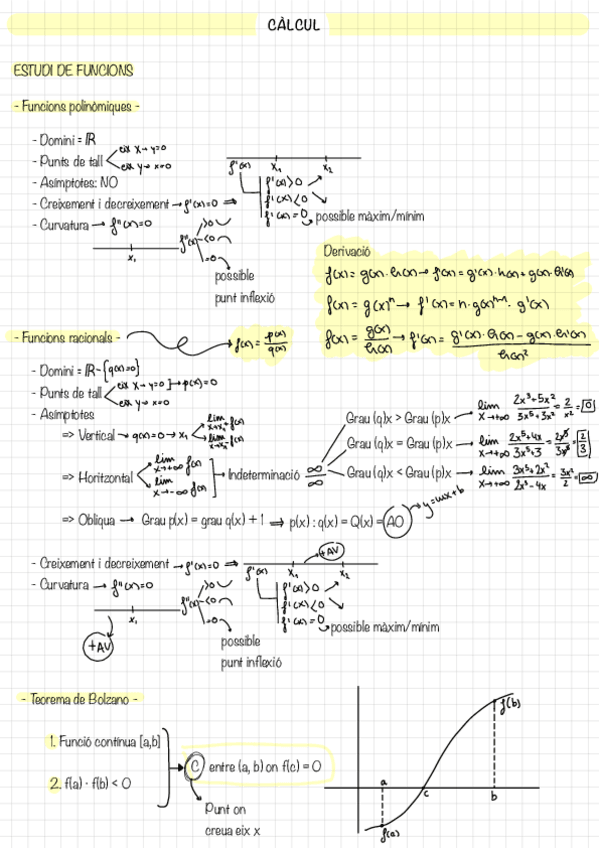 CÀLCUL
ESTUDI DE FUNCIONS
- Funcions polinòmiques -
- Domini = ℝ
- Punts de tall
eix X → y=0
eix y → x=0
- Asímptotes: NO
- Creixement i decreixement → f'(x)=0 ⇒
f'(x) x₁ x₂
f'(x) > 0 ↗
f'(x) < 0 ↘
f'(x) = 0 possible màxim/mínim
- Curvatura → f''(x)=0
x₁
f''(x)
>0
<0
=0
possible
punt inflexió
Derivació
f(x) = g(x) · h(x) → f'(x) = g'(x) · h(x) + g(x) · h'(x)
f(x) = g(x)ⁿ → f'(x) = n · g(x)ⁿ⁻¹ · g'(x)
f(x) = g(x)/h(x) → f'(x) = g'(x) · h(x) - g(x) · h'(x) / h(x)²
- Funcions racionals -
f(x) = p(x)/q(x)
- Domini = ℝ - {q(x)=0}
- Punts de tall
eix X → y=0 → p(x)=0
eix y → x=0
- Asímptotes
⇒ Vertical → q(x)=0 → x₁
lim x→x₁⁺ f(x)
lim x→x₁⁻ f(x)
⇒ Horitzontal
lim x→+∞ f(x)
lim x→-∞ f(x)
Indeterminació ∞/∞
Grau (q)x > Grau (p)x → lim x→+∞ 2x³+5x²/3x⁵+3x² = 2/x² = 0
Grau (q)x = Grau (p)x → lim x→+∞ 2x⁵+4x/3x⁵+3 = 2x⁵/3x⁵ = 2/3
Grau (q)x < Grau (p)x → lim x→+∞ 3x⁵+2x²/2x³-4x = 3x²/2 = ∞
⇒ Obliqua → Grau p(x) = grau q(x) + 1 ⇒ p(x) : q(x) = Q(x) = AO
y=mx+b
- Creixement i decreixement → f'(x)=0 ⇒
+AV
f'(x) x₁ x₂
f'(x) > 0 ↗
f'(x) < 0 ↘
f'(x) = 0 possible màxim/mínim
- Curvatura → f''(x)=0
x₁
+AV
f''(x)
>0
<0
=0
possible
punt inflexió
- Teorema de Bolzano -
1. Funció contínua [a,b]
2. f(a) · f(b) < 0
C entre (a, b) on f(c) = 0
Punt on
creua eix x
f(b)
a
c
b
f(a)